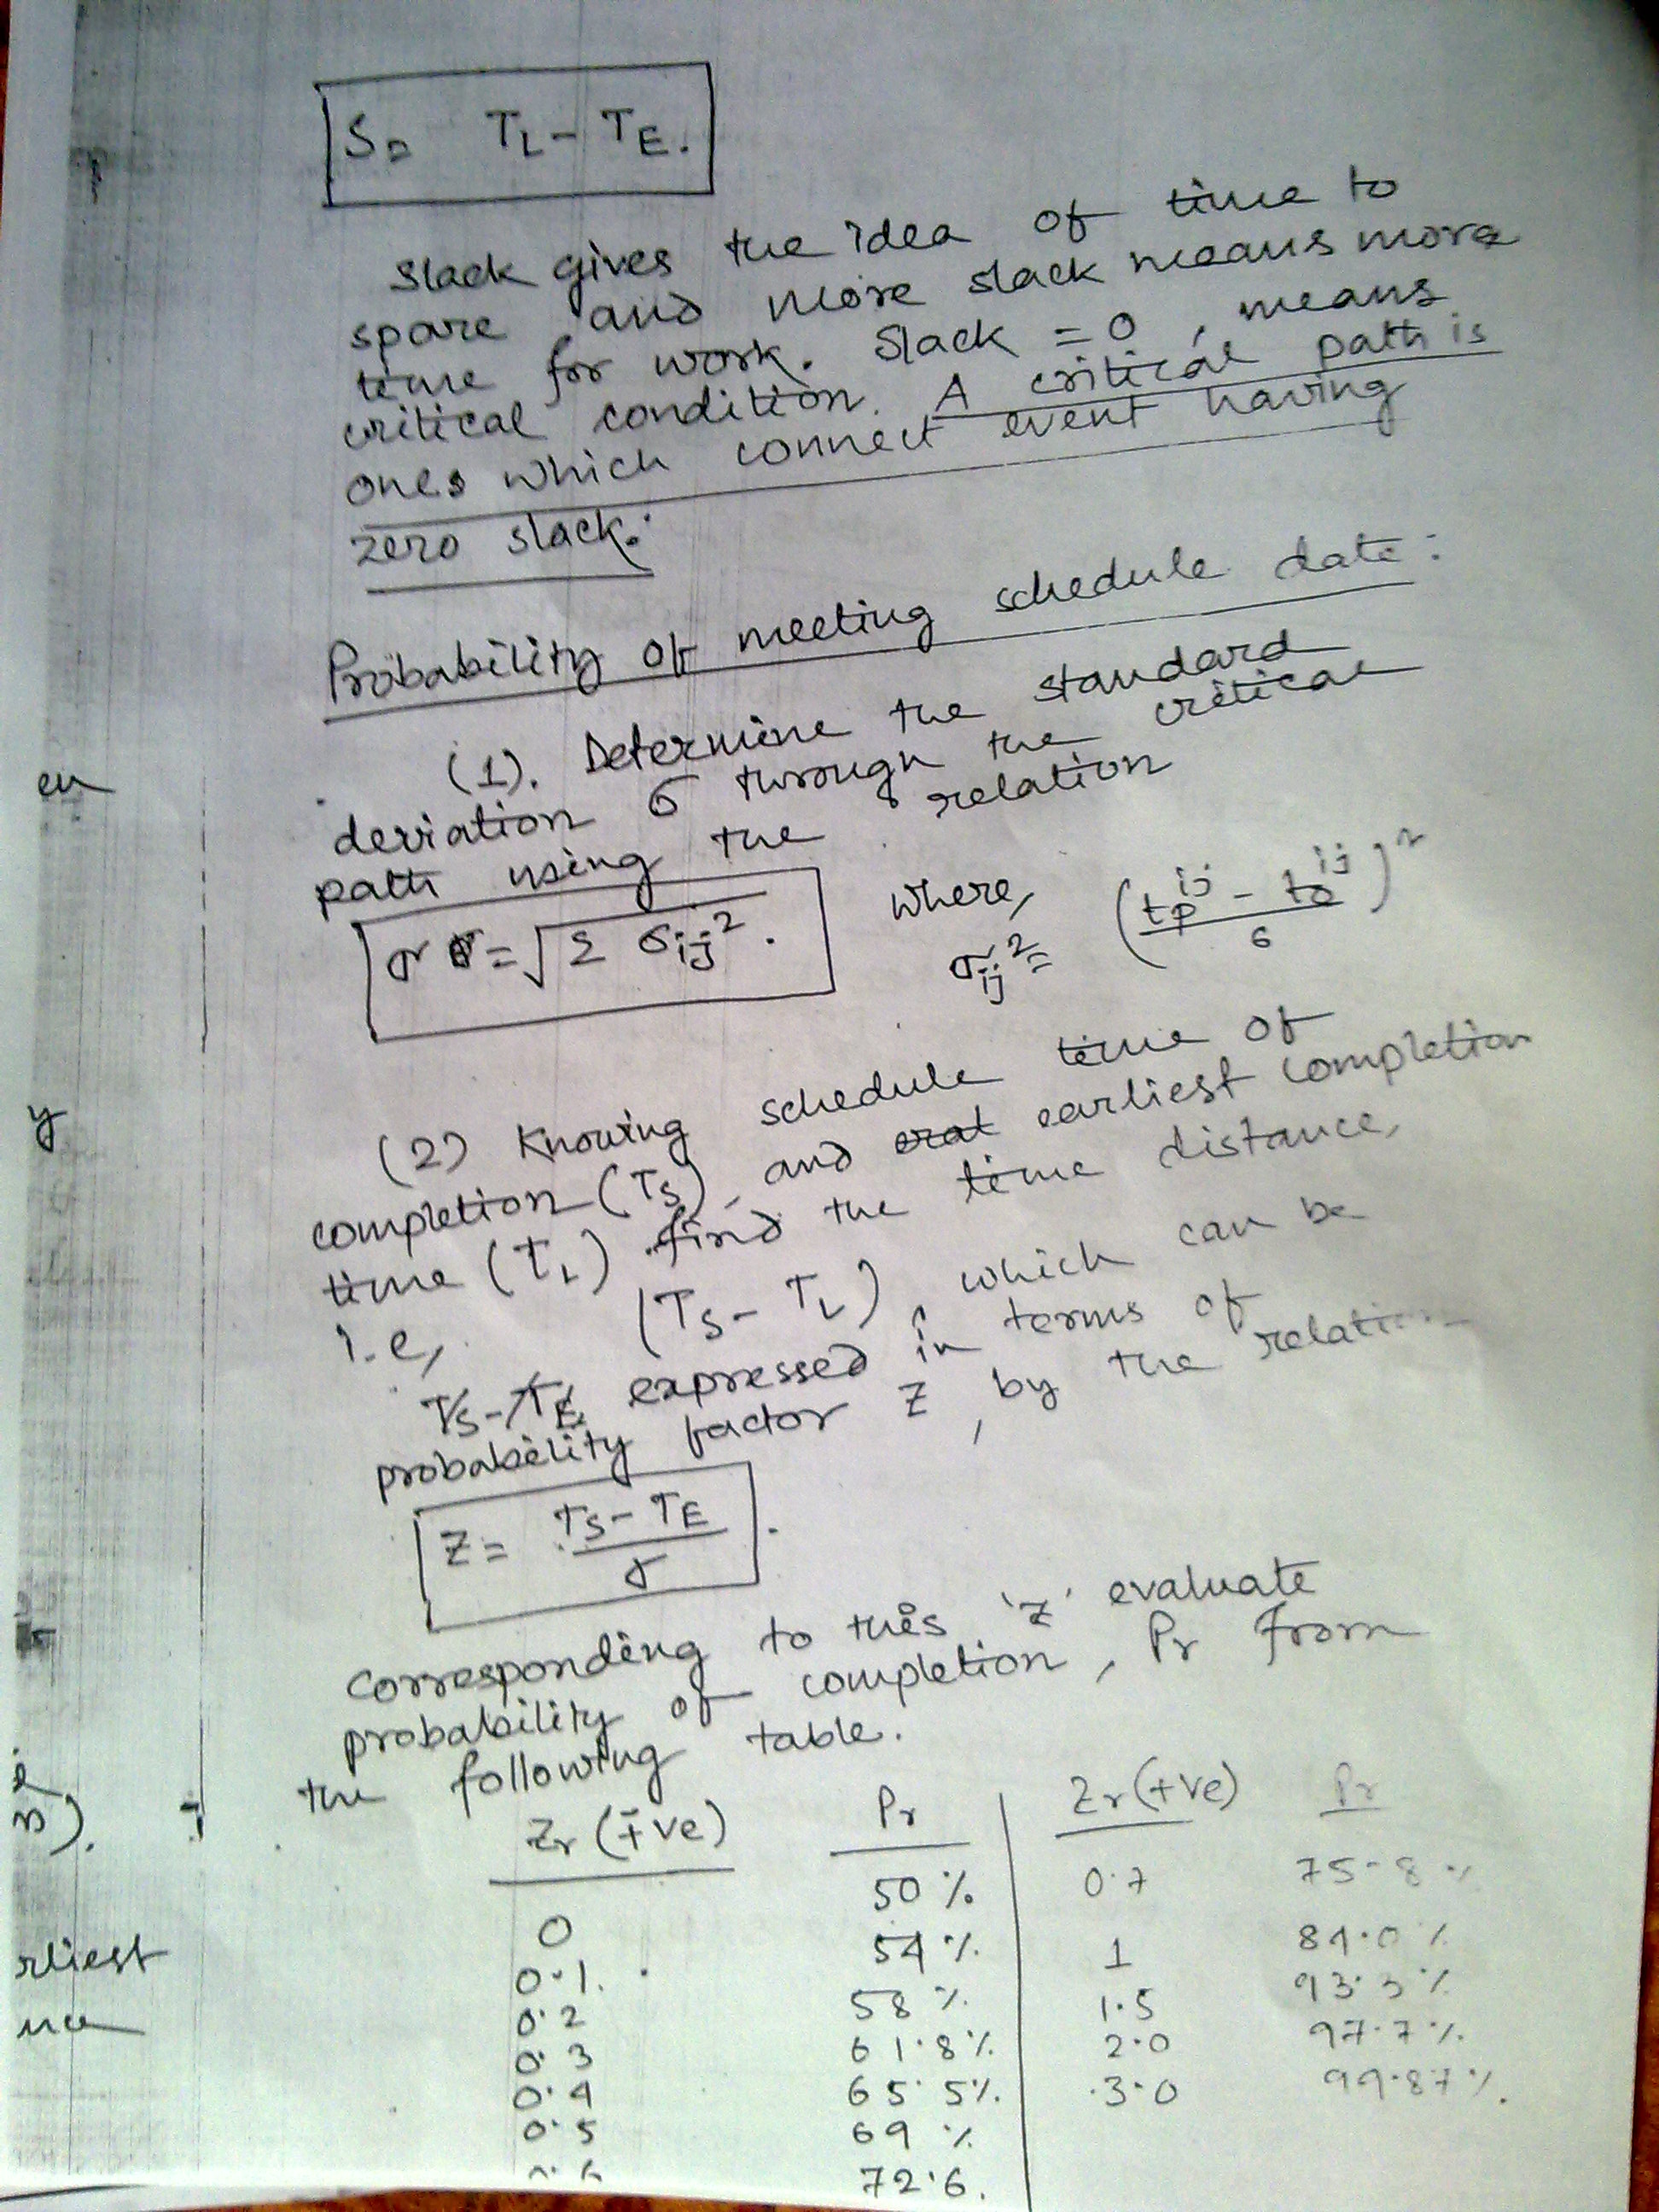 S= TL - TE.
Slack gives the idea of time to
spare and more slack means more
time for work. Slack = 0, means
critical condition. A critical path is
ones which connect event having
zero slack.
Probability of meeting schedule date:
(1). Determine the standard
deviation σ through the critical
path using the relation
σ = √Σ σij². where, σij² = (tp^ij - to^ij / 6)²
(2) Knowing schedule time of
completion (TS), and earliest completion
time (TL) find the time distance,
i.e, (TS - TL), which can be
TS - TE expressed in terms of
probability factor Z, by the relation
Z = TS - TE / σ.
Corresponding to this 'z' evaluate
probability of completion, Pr from
the following table.
Zr (+ve) Pr Zr (+ve) Pr
0 50% 0.7 75.8%
0.1. 54% 1 84.0%
0.2 58% 1.5 93.3%
0.3 61.8% 2.0 97.7%
0.4 65.5% 3.0 99.87%.
0.5 69%
0.6 72.6.
en
y
rliest